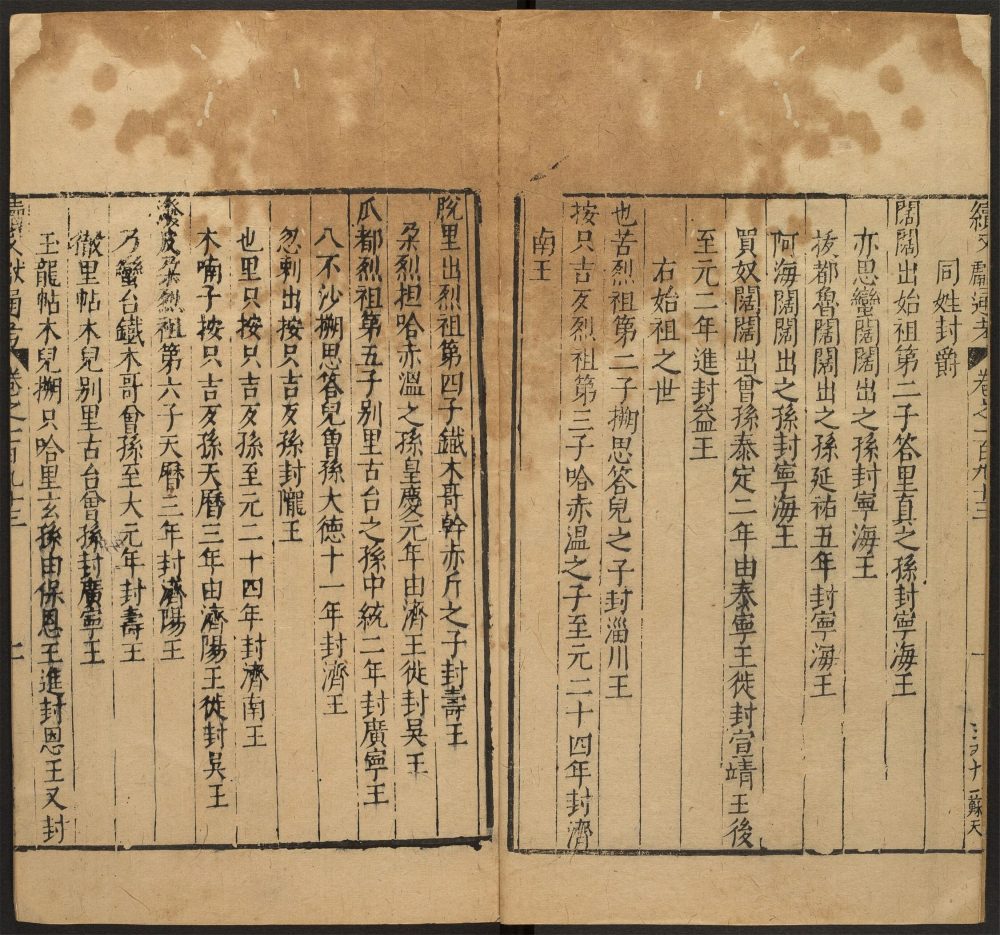 續文獻通考 卷之一百九十三 一 三九十一 蘇天
同姓封爵
闊闊出始祖第二子答里真之孫封寧海王
亦思蠻闊闊出之孫封寧海王
拔都魯闊闊出之孫延祐五年封寧海王
阿海闊闊出之孫封寧海王
買奴闊闊出曾孫泰定二年由泰寧王徙封宣靖王後
至元二年進封益王
右始祖之世
也苦烈祖第二子搠思答兒之子封淄川王
按只吉歹烈祖第三子哈赤溫之子至元二十四年封濟
南王
脫里出烈祖第四子鐵木哥斡赤斤之子封壽王
朶烈担哈赤溫之孫皇慶元年由濟王徙封吳王
爪都烈祖第五子别里古台之孫中統二年封廣寧王
八不沙搠思答兒曾孫大德十一年封濟王
忽剌出按只吉歹孫封隴王
也里只按只吉歹孫至元二十四年封濟南王
木喃子按只吉歹孫天曆三年由濟陽王徙封吳王
烈祖第六子天曆三年封濟陽王
乃蠻台鐵木哥曾孫至大元年封壽王
徹里帖木兒别里古台曾孫封廣寧王
玉龍帖木兒搠只哈里玄孫由保恩王進封恩王又封
續文獻通考 卷之一百九十三